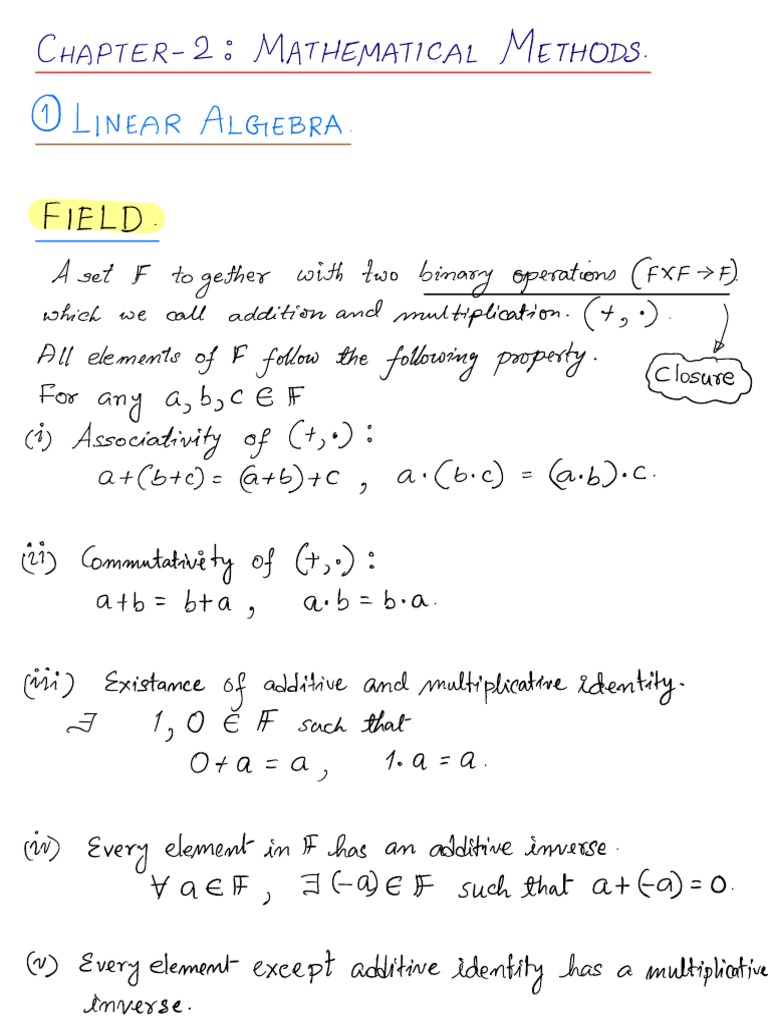 CHAPTER-2: MATHEMATICAL METHODS.
① LINEAR ALGEBRA.
FIELD.
A set F together with two binary operations (F×F→F)
which we call addition and multiplication. (+, ·).
Closure
All elements of F follow the following property.
For any a, b, c ∈ F
(i) Associativity of (+, ·) :
a+(b+c) = (a+b)+c , a·(b·c) = (a·b)·c.
(ii) Commutativity of (+, ·) :
a+b = b+a , a·b = b·a.
(iii) Existance of additive and multiplicative identity.
∃ 1, 0 ∈ F such that
0+a = a , 1·a = a.
(iv) Every element in F has an additive inverse.
∀ a ∈ F , ∃ (-a) ∈ F such that a+(-a) = 0.
(v) Every element except additive identity has a multiplicative
inverse.